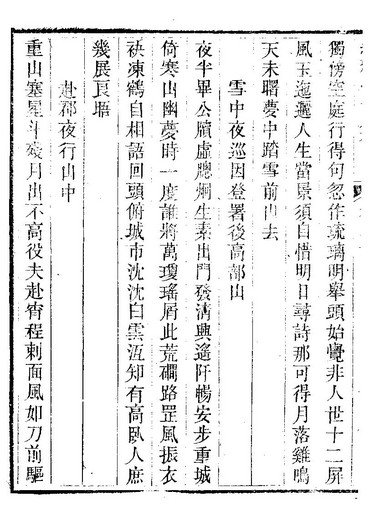 獨傍空庭行得句忽作琉璃明舉頭始覺非人世十二屏
風玉迤邐人生當景須自惜明日尋詩那可得月落雞鳴
天未曙夢中踏雪前山去
雪中夜巡因登署後高部山
夜半畢公牘虛牕烱生素出門發清興遙阡暢安步重城
倚寒山幽夢時一度誰將萬瓊瑤屑此荒磵路罡風振衣
袂凍鶴自相語回頭俯城市沈沈白雲沍知有高臥人庶
幾展良晤
赴郡夜行山中
重山塞星斗殘月出不高役夫赴宵程刺面風如刀前驅